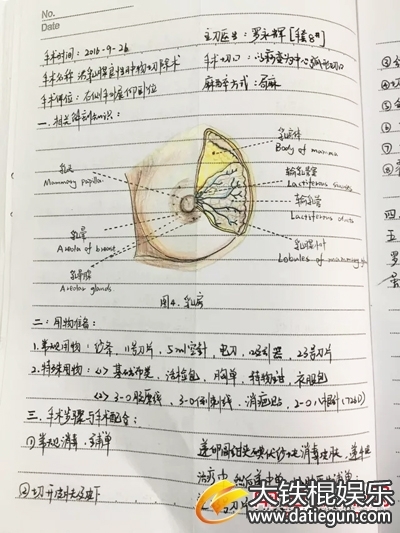 No.
Date
手术时间：2016-9-26 主刀医生：罗永辉[手术8#]
手术名称：右乳腺良性肿物切除术 手术切口：以病变为中心弧形切口
手术体位：右侧手外展仰卧位 麻醉方式：局麻
一、相关解剖知识：
乳房体
Body of mamma
乳头
Mammary papilla
输乳管窦
Lactiferous sinuses
输乳管
Lactiferous ducts
乳晕
Areola of breast
乳腺小叶
Lobules of mammary
乳晕腺
Areolar glands
图4. 乳房
二：用物准备：
1. 常规用物：纱布、11号刀片、5ml空针、电刀、吸引器、23号刀片
2. 特殊用物：<1> 基础布类、活检包、胸单、植物钳、衣服包
<2> 3-0胶原线、3-0可刺线、消疤贴、2-0八根针
三、手术步骤与手术配合：
① 常规消毒、铺单 递卵圆钳夹碘伏纱布消毒皮肤
治疗巾
② 切开皮肤及皮下
大铁棍娱乐
www.datiegun.com